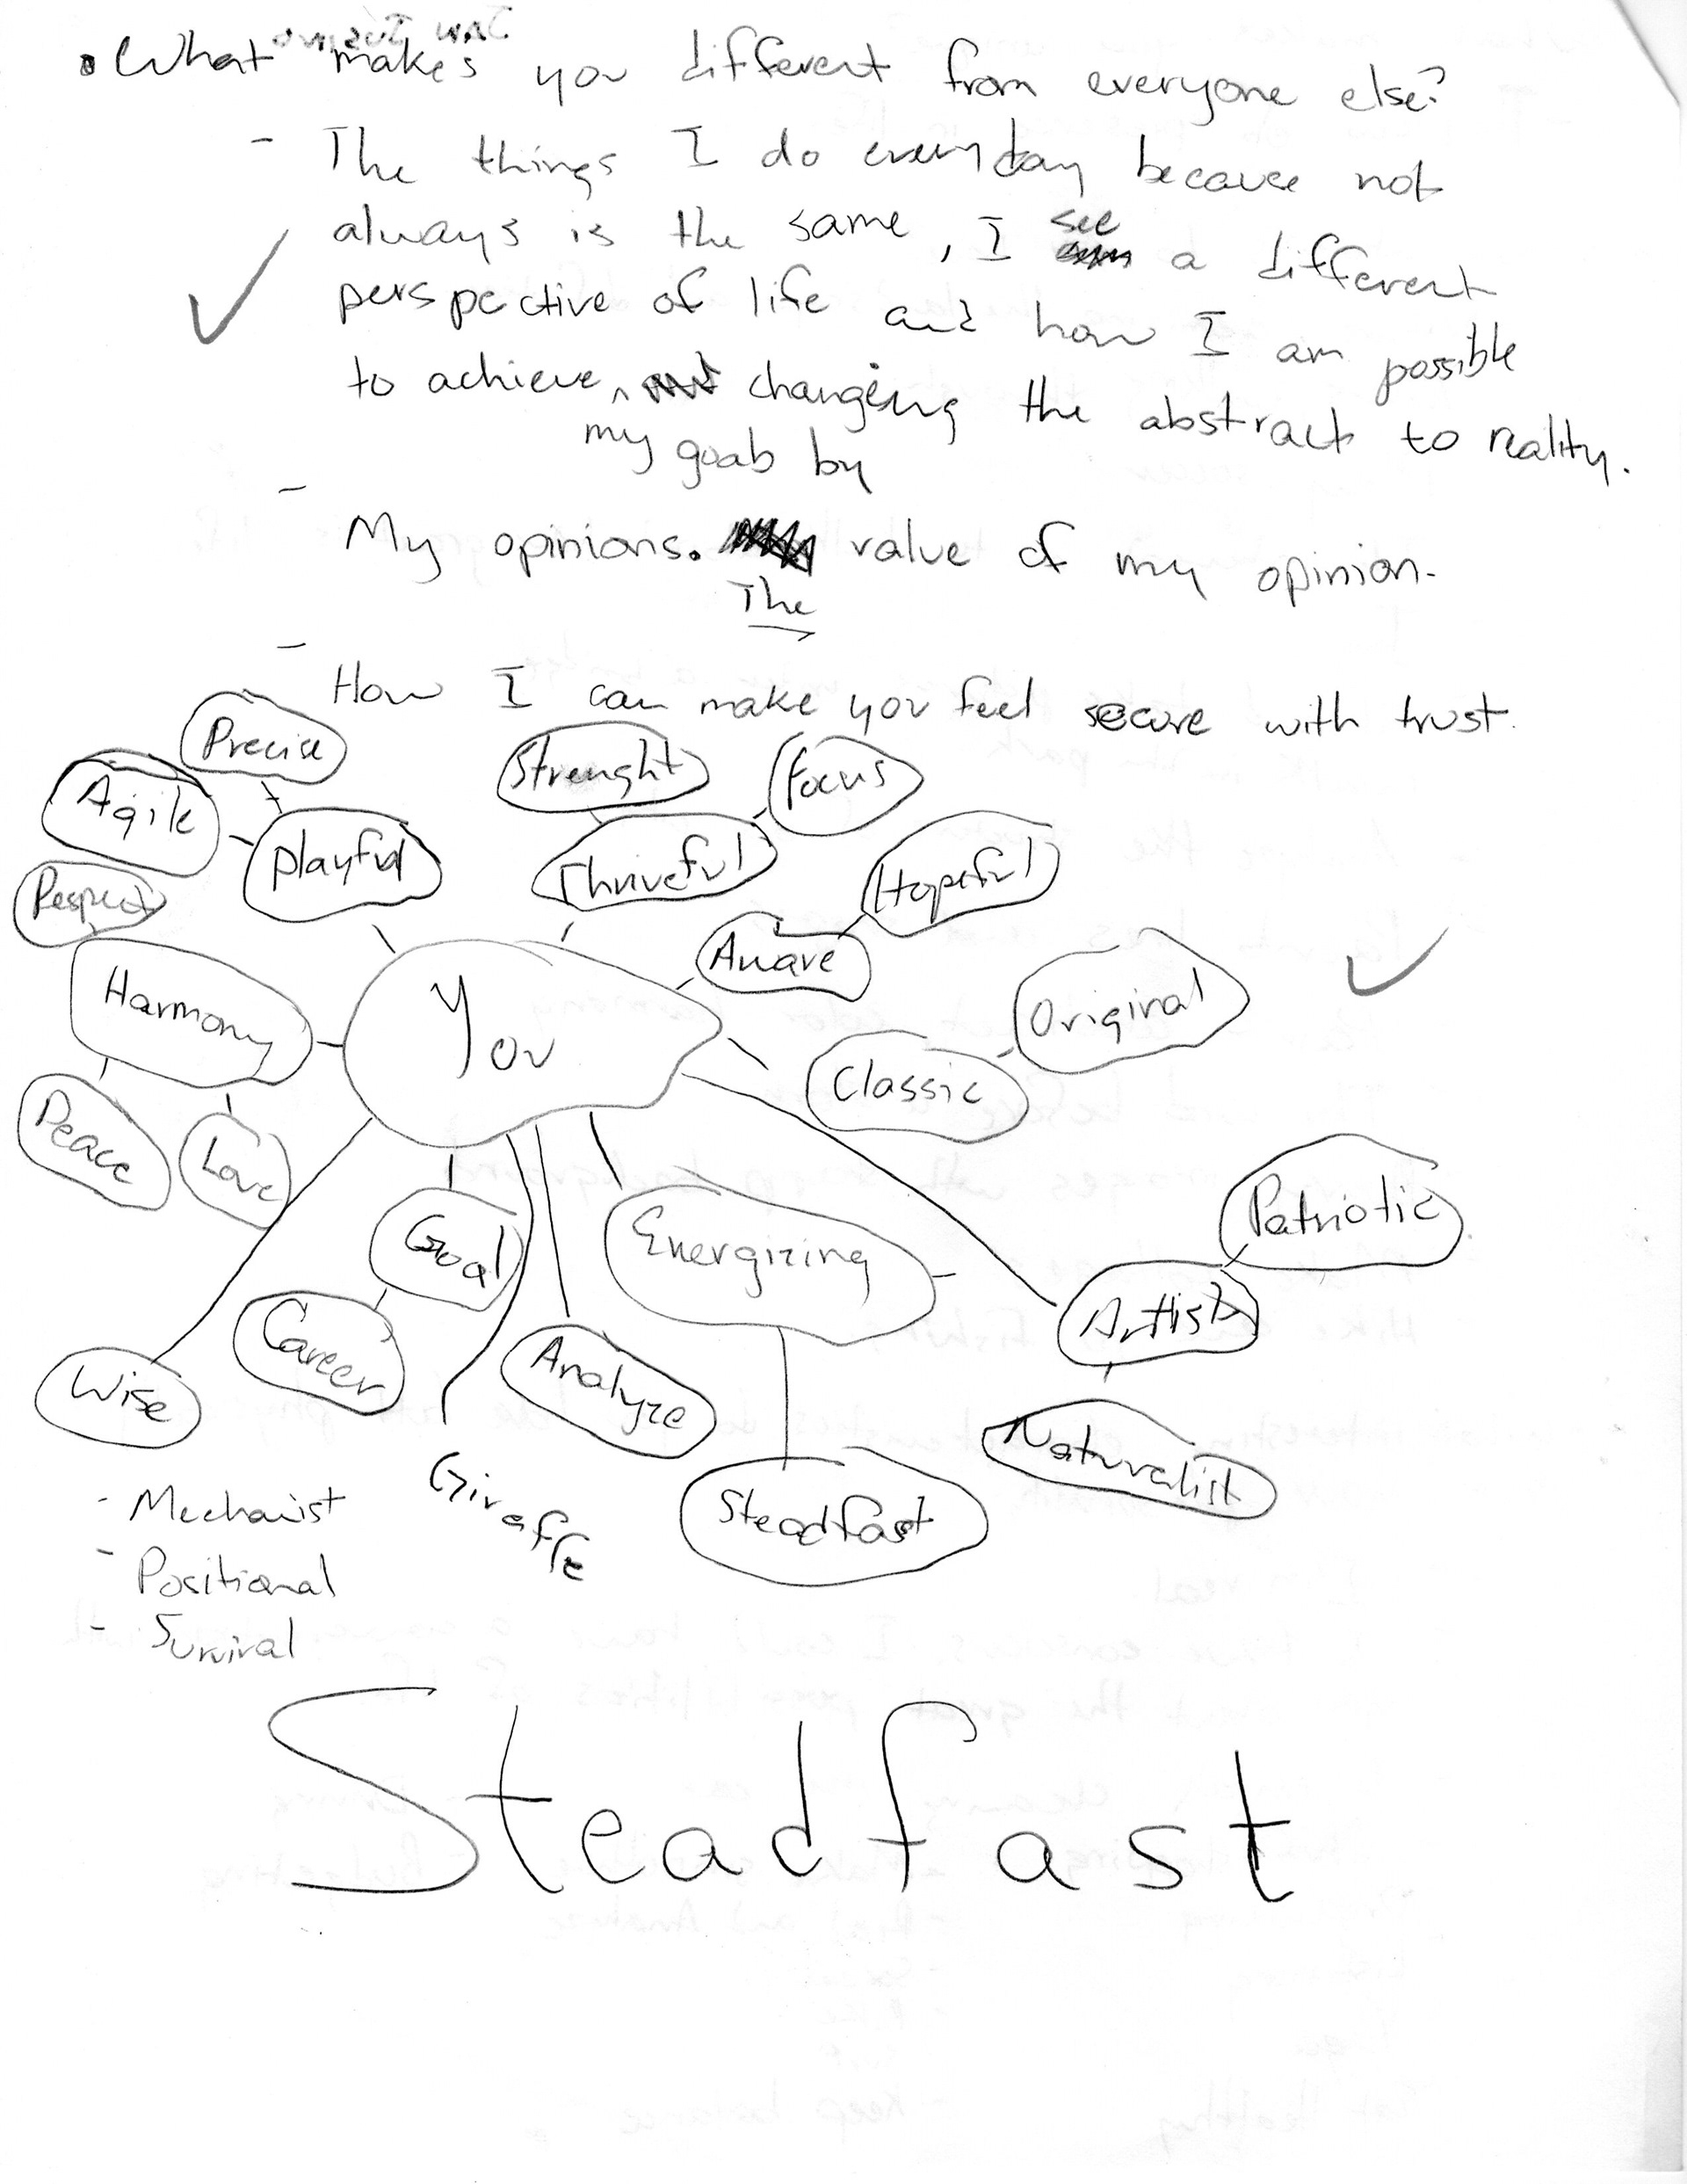 • What makes you different from everyone else?
- The things I do everyday because not
always is the same, I see a different
perspective of life and how I am possible
to achieve, my goals by changeing the abstract to reality.
- My opinions. The value of my opinion.
- How I can make you feel secure with trust.
Precise
Strenght
Focus
Agile
Playful
Thriveful
Hopeful
Respect
Aware
Harmony
You
Original
Classic
Peace
Love
Goal
Energizing
Patriotic
Artist
Career
Analyze
Wise
Naturalist
Giraffe
Steadfast
- Mechanist
- Positional
- Survival
Steadfast